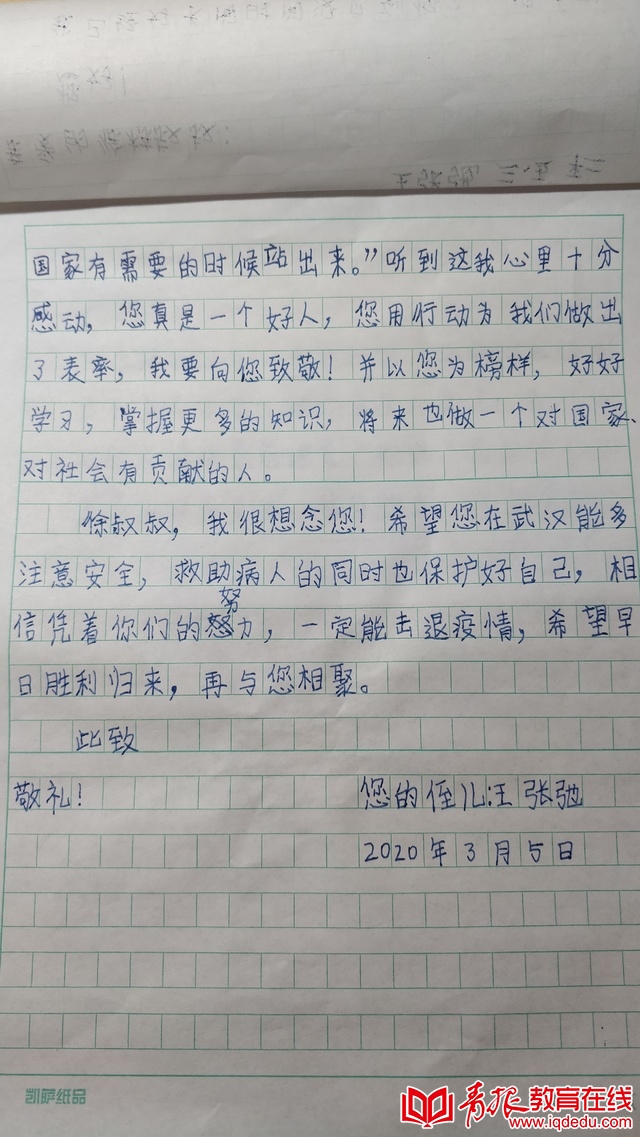 国家有需要的时候站出来。”听到这我心里十分
感动，您真是一个好人，您用行动为我们做出
了表率，我要向您致敬！并以您为榜样，好好
学习，掌握更多的知识，将来也做一个对国家、
对社会有贡献的人。
徐叔叔，我很想念您！希望您在武汉能多
注意安全，救助病人的同时也保护好自己，相
信凭着你们的努力，一定能击退疫情，希望早
日胜利归来，再与您相聚。
此致
敬礼！
您的侄儿：王张弛
2020年3月5日
凯萨纸品
青报教育在线
www.iqdedu.com